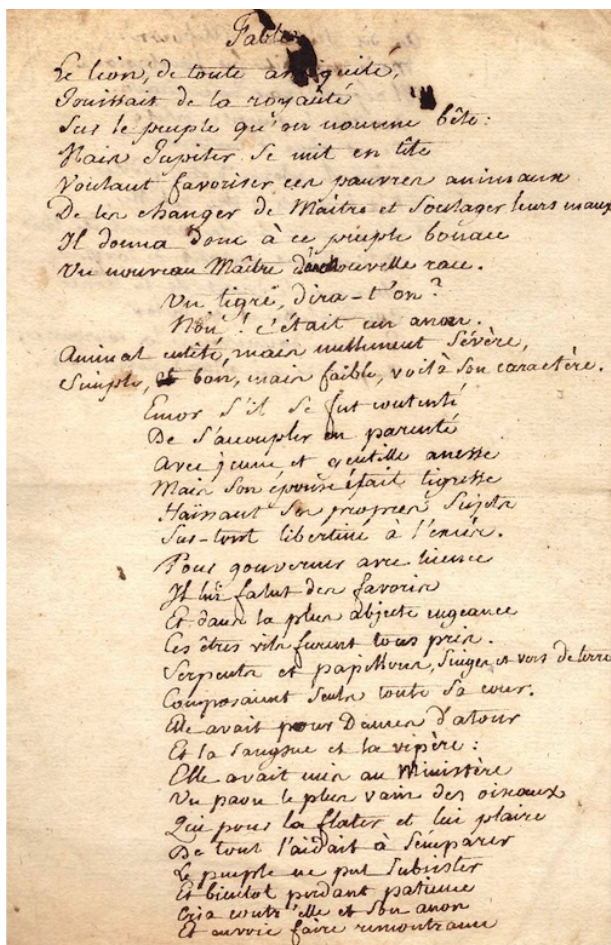 Fable
Le lion, de toute antiquité,
Jouissait de la royauté
Sur le peuple qu'on nomme bête:
Mais Jupiter se mit en tête
Voulant favoriser ces pauvres animaux
De les changer de Maître et soulager leurs maux
Il donna donc à ce peuple bonace
Un nouveau Maître nouvelle race.
Un tigre, dira-t'on?
Non! c'était un anon.
Animal entêté, mais nullement sévère,
Simple, bon, mais faible, voilà son caractère.
Encor s'il se fut contenté
De s'accoupler en parenté
Avec jeune et gentille anesse
Mais son épouse était tigresse
Haïssant ses propres sujets
Sur-tout libertine à l'excès.
Pour gouverner avec licence
Il lui falut des favoris
Et dans la plus abjecte engeance
Ces êtres vils furent tous pris.
Serpents et papillons, singes et vers de terre
Composaient seuls toute sa cour.
Elle avait pour Dames d'atour
Et la sangsue et la vipère:
Elle avait mis au Ministère
Un paon le plus vain des oiseaux
Qui pour la flater et lui plaire
De tout l'aidait à s'emparer
Le peuple ne put subsister
Et bientot perdant patience
Cria contr'elle et son anon
Et envoie faire remontrance